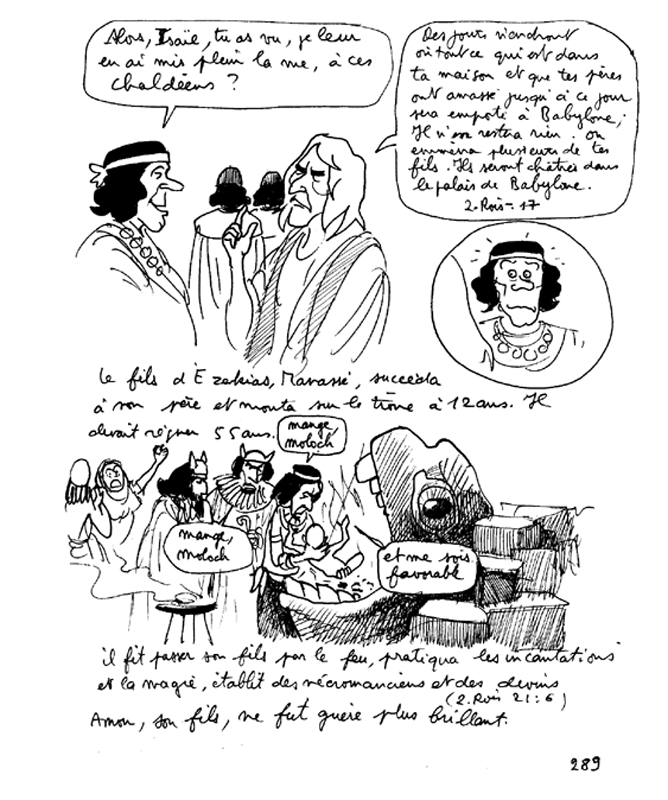 Alors, Isaïe, tu as vu, je leur
en ai mis plein la vue, à ces
chaldéens ?
Des jours viendront
où tout ce qui est dans
ta maison et que tes pères
ont amassé jusqu'à ce jour
sera emporté à Babylone,
Il n'en restera rien. on
emmènera plusieurs de tes
fils. Ils seront châtrés dans
le palais de Babylone.
2. Rois - 17
Le fils d'Ezékias, Manassé, succéda
à son père et monta sur le trône à 12 ans. Il
devait régner 55 ans.
mange
moloch
mange,
moloch
et me sois
favorable
il fit passer son fils par le feu, pratiqua les incantations
et la magie, établit des nécromanciens et des devins
(2. Rois 21:6)
Amon, son fils, ne fut guère plus brillant.
289